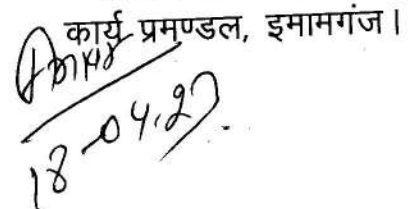 कार्य प्रमण्डल, इमामगंज।
18-04.27